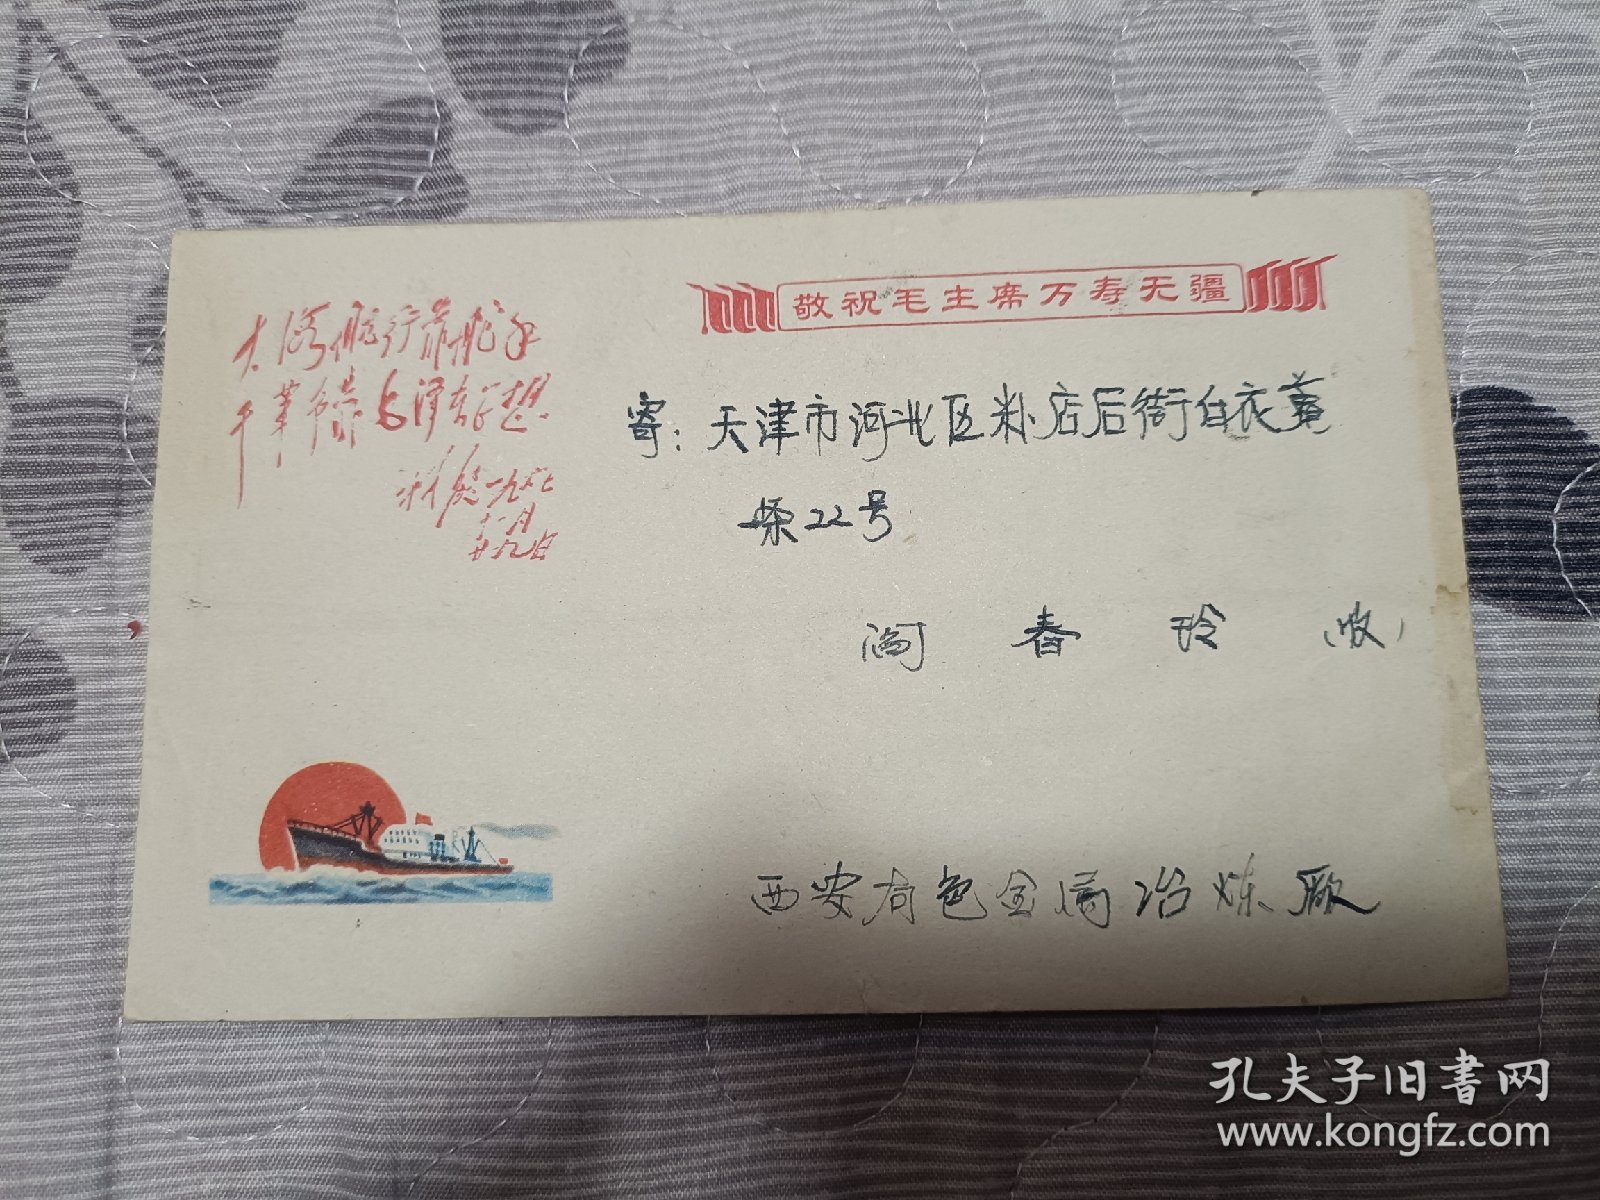 敬祝毛主席万寿无疆
大海航行靠舵手
干革命靠毛泽东思想
林彪一九六七
十一月
廿九日
寄:天津市河北区粮店后街白衣菴
栄22号
阎春玲(收)
西安有色金属冶炼厰
孔夫子旧書网
www.kongfz.com